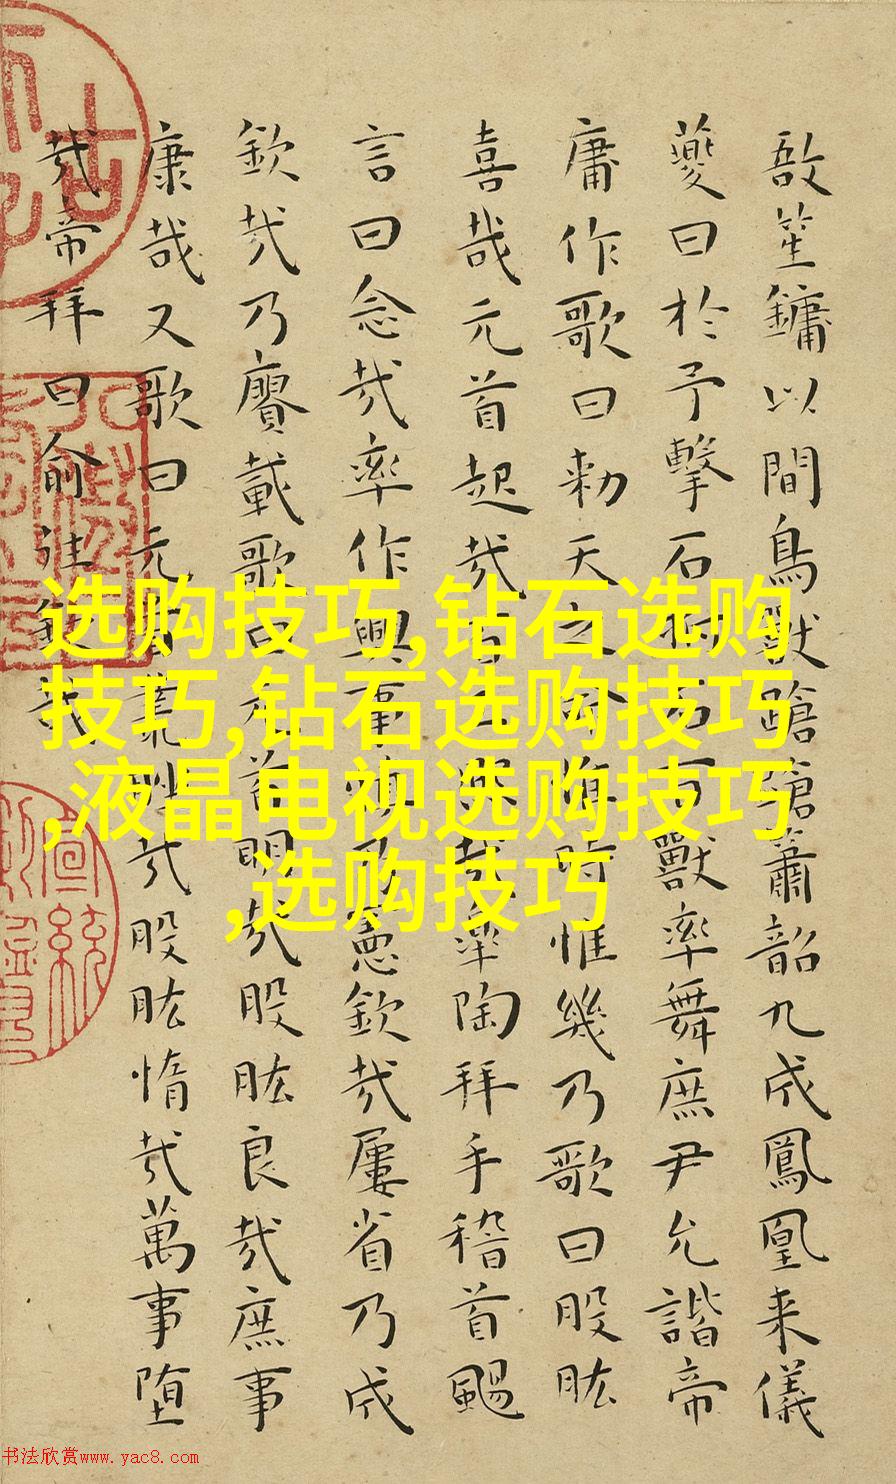 敔笙鏞以間鳥獸蹌蹌蕭韶九成鳳凰来儀
夔曰於予擊石拊石百獸率舞庶尹允諧帝
庸作歌曰勑天之命惟時惟幾乃歌曰股肱
喜哉元首起哉百工熙哉皋陶拜手稽首颺
言曰念哉率作興事慎乃憲欽哉屢省乃成
欽哉乃賡載歌曰元首明哉股肱良哉庶事
康哉又歌曰元首叢脞哉股肱惰哉萬事堕
哉帝拜曰俞往欽哉
选购技巧,钻石选购
技巧,钻石选购技巧
,液晶电视选购技巧
,选购技巧
书法欣赏www.yac8.com